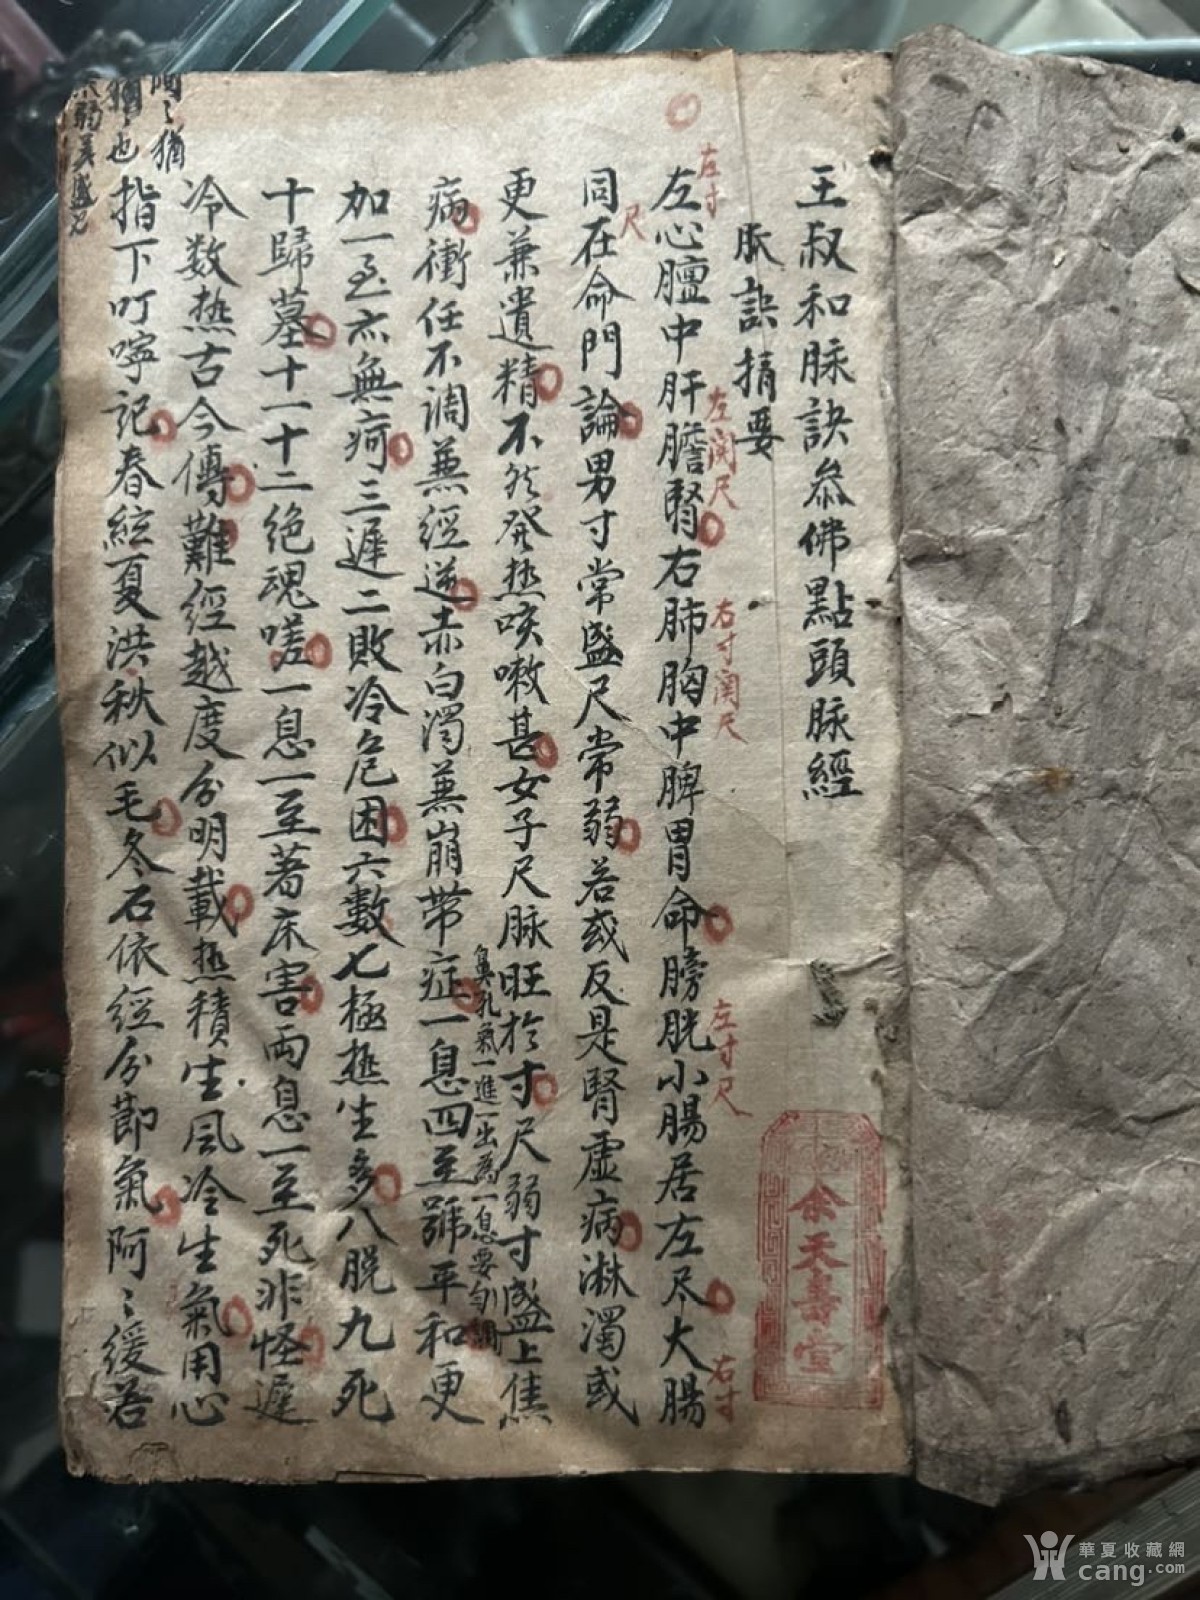 王叔和脉訣參佛點頭脉經
脈訣捐要
左寸
左関尺
右寸関尺
左寸尺
右寸
左心膻中肝膽腎右肺胸中脾胃命膀胱小腸居左尽大腸
尺
同在命門論男寸常盛尺常弱若或反是腎虚病淋濁或
更兼遺精不然發热咳嗽甚女子尺脉旺於寸尺弱寸盛上焦
鼻孔氣一進一出為一息要匀調
病衝任不調兼經逆赤白濁兼崩带症一息四至號平和更
加一至亦無疴三遲二敗冷危困六數七極热生多八脱九死
十歸墓十一十二绝魂嗟一息一至著床害两息一至死非怪遲
冷数热古今傳難經越度分明載热積生風冷生氣用心
指下叮嚀記春絃夏洪秋似毛冬石依經分節氣阿〻緩若
〻猶
也
余天壽堂
華夏收藏網
cang.com